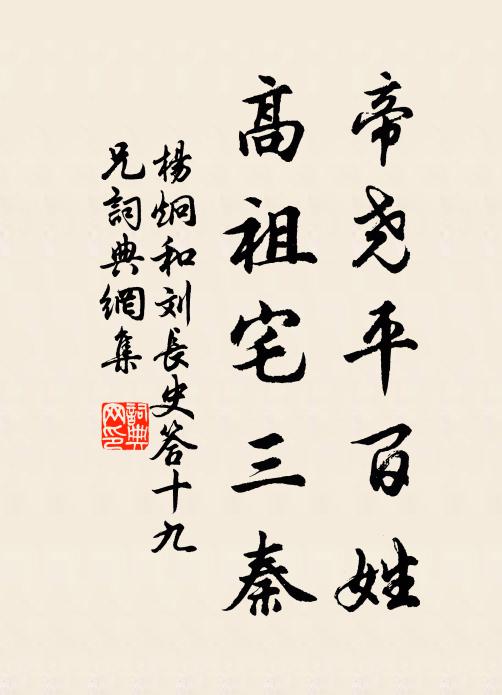 帝尧平百姓
高祖宅三秦
杨炯和刘长史答十九
兄词典网集
词典网印